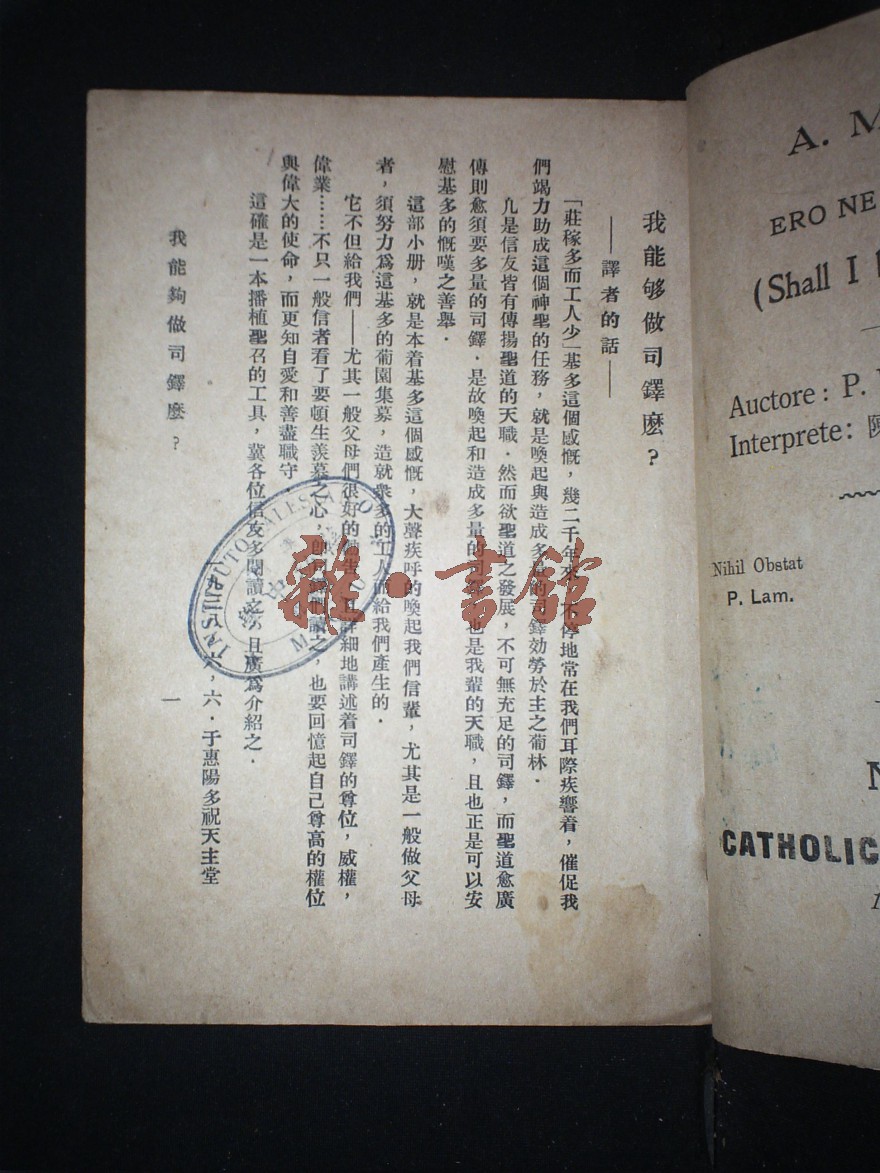 我能够做司鐸麽？
——譯者的話——
「莊稼多而工人少」基多這個感慨，幾二千年來，不停地常在我們耳際疾響着，催促我
們竭力助成這個神聖的任務，就是喚起與造成多量的司鐸効勞於主之葡林．
凡是信友皆有傳揚聖道的天職．然而欲聖道之發展，不可無充足的司鐸，而聖道愈廣
傳則愈須要多量的司鐸．是故喚起和造成多量的司鐸，也是我輩的天職，且也正是可以安
慰基多的慨嘆之善舉．
這部小册，就是本着基多這個感慨，大聲疾呼的喚起我們信輩，尤其是一般做父母
者，須努力爲這基多的葡園集募，造就衆多的工人而給我們產生的．
它不但給我們——尤其一般父母們很好的 細地講述着司鐸的尊位，威權，
偉業……不只一般信者看了要頓生羨慕之心，卽司鐸們讀之，也要回憶起自己尊高的權位
與偉大的使命，而更知自愛和善盡職守．
這確是一本播植聖召的工具，冀各位信友多閱讀之，且廣爲介紹之．
六，六．于惠陽多祝天主堂
我能夠做司鐸麽？
一
雜·書館
A. M
ERO NE
(Shall I
Auctore: P.
Interprete: 陳
Nihil Obstat
P. Lam.
CATHOLIC